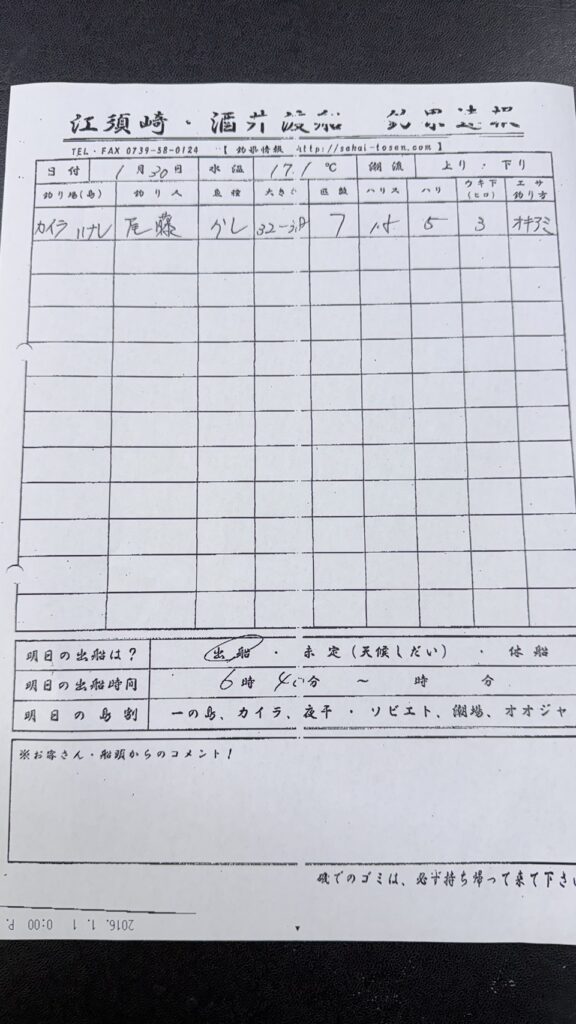 江須崎・酒井渡船 釣果速報
TEL・FAX 0739-58-0124 【 釣果情報 http://sakai-tosen.com 】
日付 1月30日 水温 17.1℃ 潮流 上り・下り
釣り場(島) 釣り人 魚種 大きさ 匹数 ハリス ハリ ウキ下(ヒロ) エサ釣り方
カイラ ハナレ 尾藤 グレ 32-38 7 1.5 5 3 オキアミ
明日の出船は? 出船・未定(天候しだい)・休船
明日の出船時間 6時40分 ~ 時 分
明日の島割 一の島、カイラ、夜平・ソビエト、潮場、オオジャ
※お客さん・船頭からのコメント!
磯でのゴミは、必ず持ち帰って来て下さい
2016. 1. 1 0:00 P.